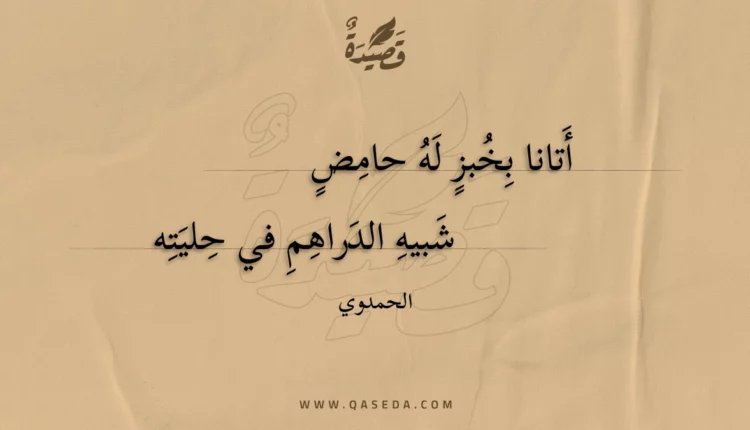 قَصِيدَةٌ
أَتانا بِخُبزٍ لَهُ حامِضٍ
شَبيهِ الدَراهِمِ في حِليَتِه
الحمدوي
WWW.QASEDA.COM